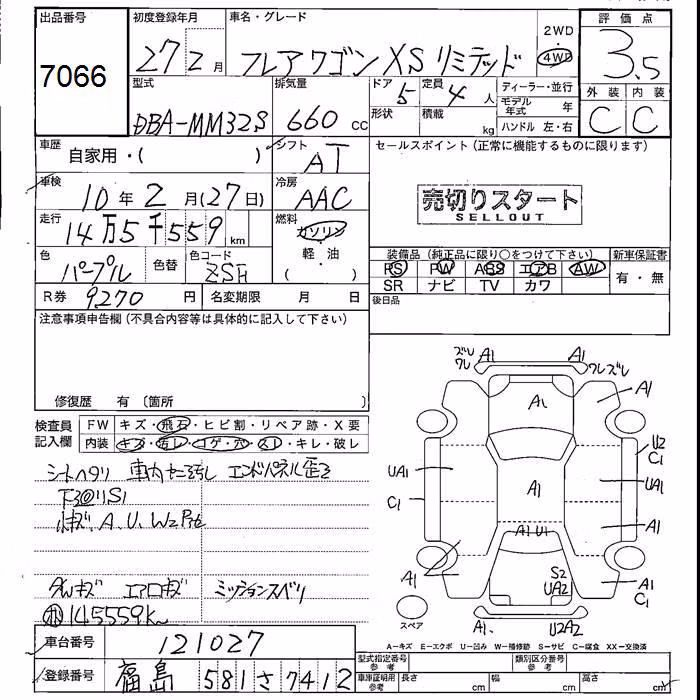 出品番号 初度登録年月 車名・グレード 評価点
7066 27年2月 フレアワゴン XSリミテッド 2WD 4WD 3.5
型式 排気量 ドア 定員 ディーラー・並行 外装 内装
DBA-MM32S 660 CC 5 4人 モデル年式 年 C C
形状 積載 kg ハンドル 左・右
車歴 自家用・( ) シフト AT セールスポイント(正常に機能するものに限ります)
車検 10年2月(27日) 冷房 AAC
売切りスタート
SELLOUT
走行 14万5千559km 燃料 ガソリン 軽・油 ( )
色 パープル 色替 色コード ZSH
装備品(純正品に限り○をつけて下さい) 新車保証書
PS PW ABS エアB AW 有・無
SR ナビ TV カワ
R券 9270円 名変期限 月 日 後日品
注意事項申告欄(不具合内容等は具体的に記入して下さい)
修復歴 有(箇所 )
検査員記入欄 FW キズ・飛石・ヒビ割・リペア跡・X要
内装 キズ・汚レ・コゲ・穴・スレ・キレ・破レ
シートヘタリ 車内 エンドパネル歪ミ
小キズ.A.U.W2
ダメキズ エアロキズ ミッションスベリ
145559K
車台番号 121027
登録番号 福島 581 さ 7412
ズレ ワレ A1 A1 ワレズレ
A1 A1
U2 C1
UA1 A1 UA1
C1 A1
A1U1
A1 S2 UA2 A1 C1
スペア A1. U2A2
A−キズ E−エクボ U−凹み W−補修跡 S−サビ C−腐食 XX−交換済
型式指定番号 参考 類別区分番号 参考
車庫証明用 参考 長さ cm 幅 cm 高さ cm